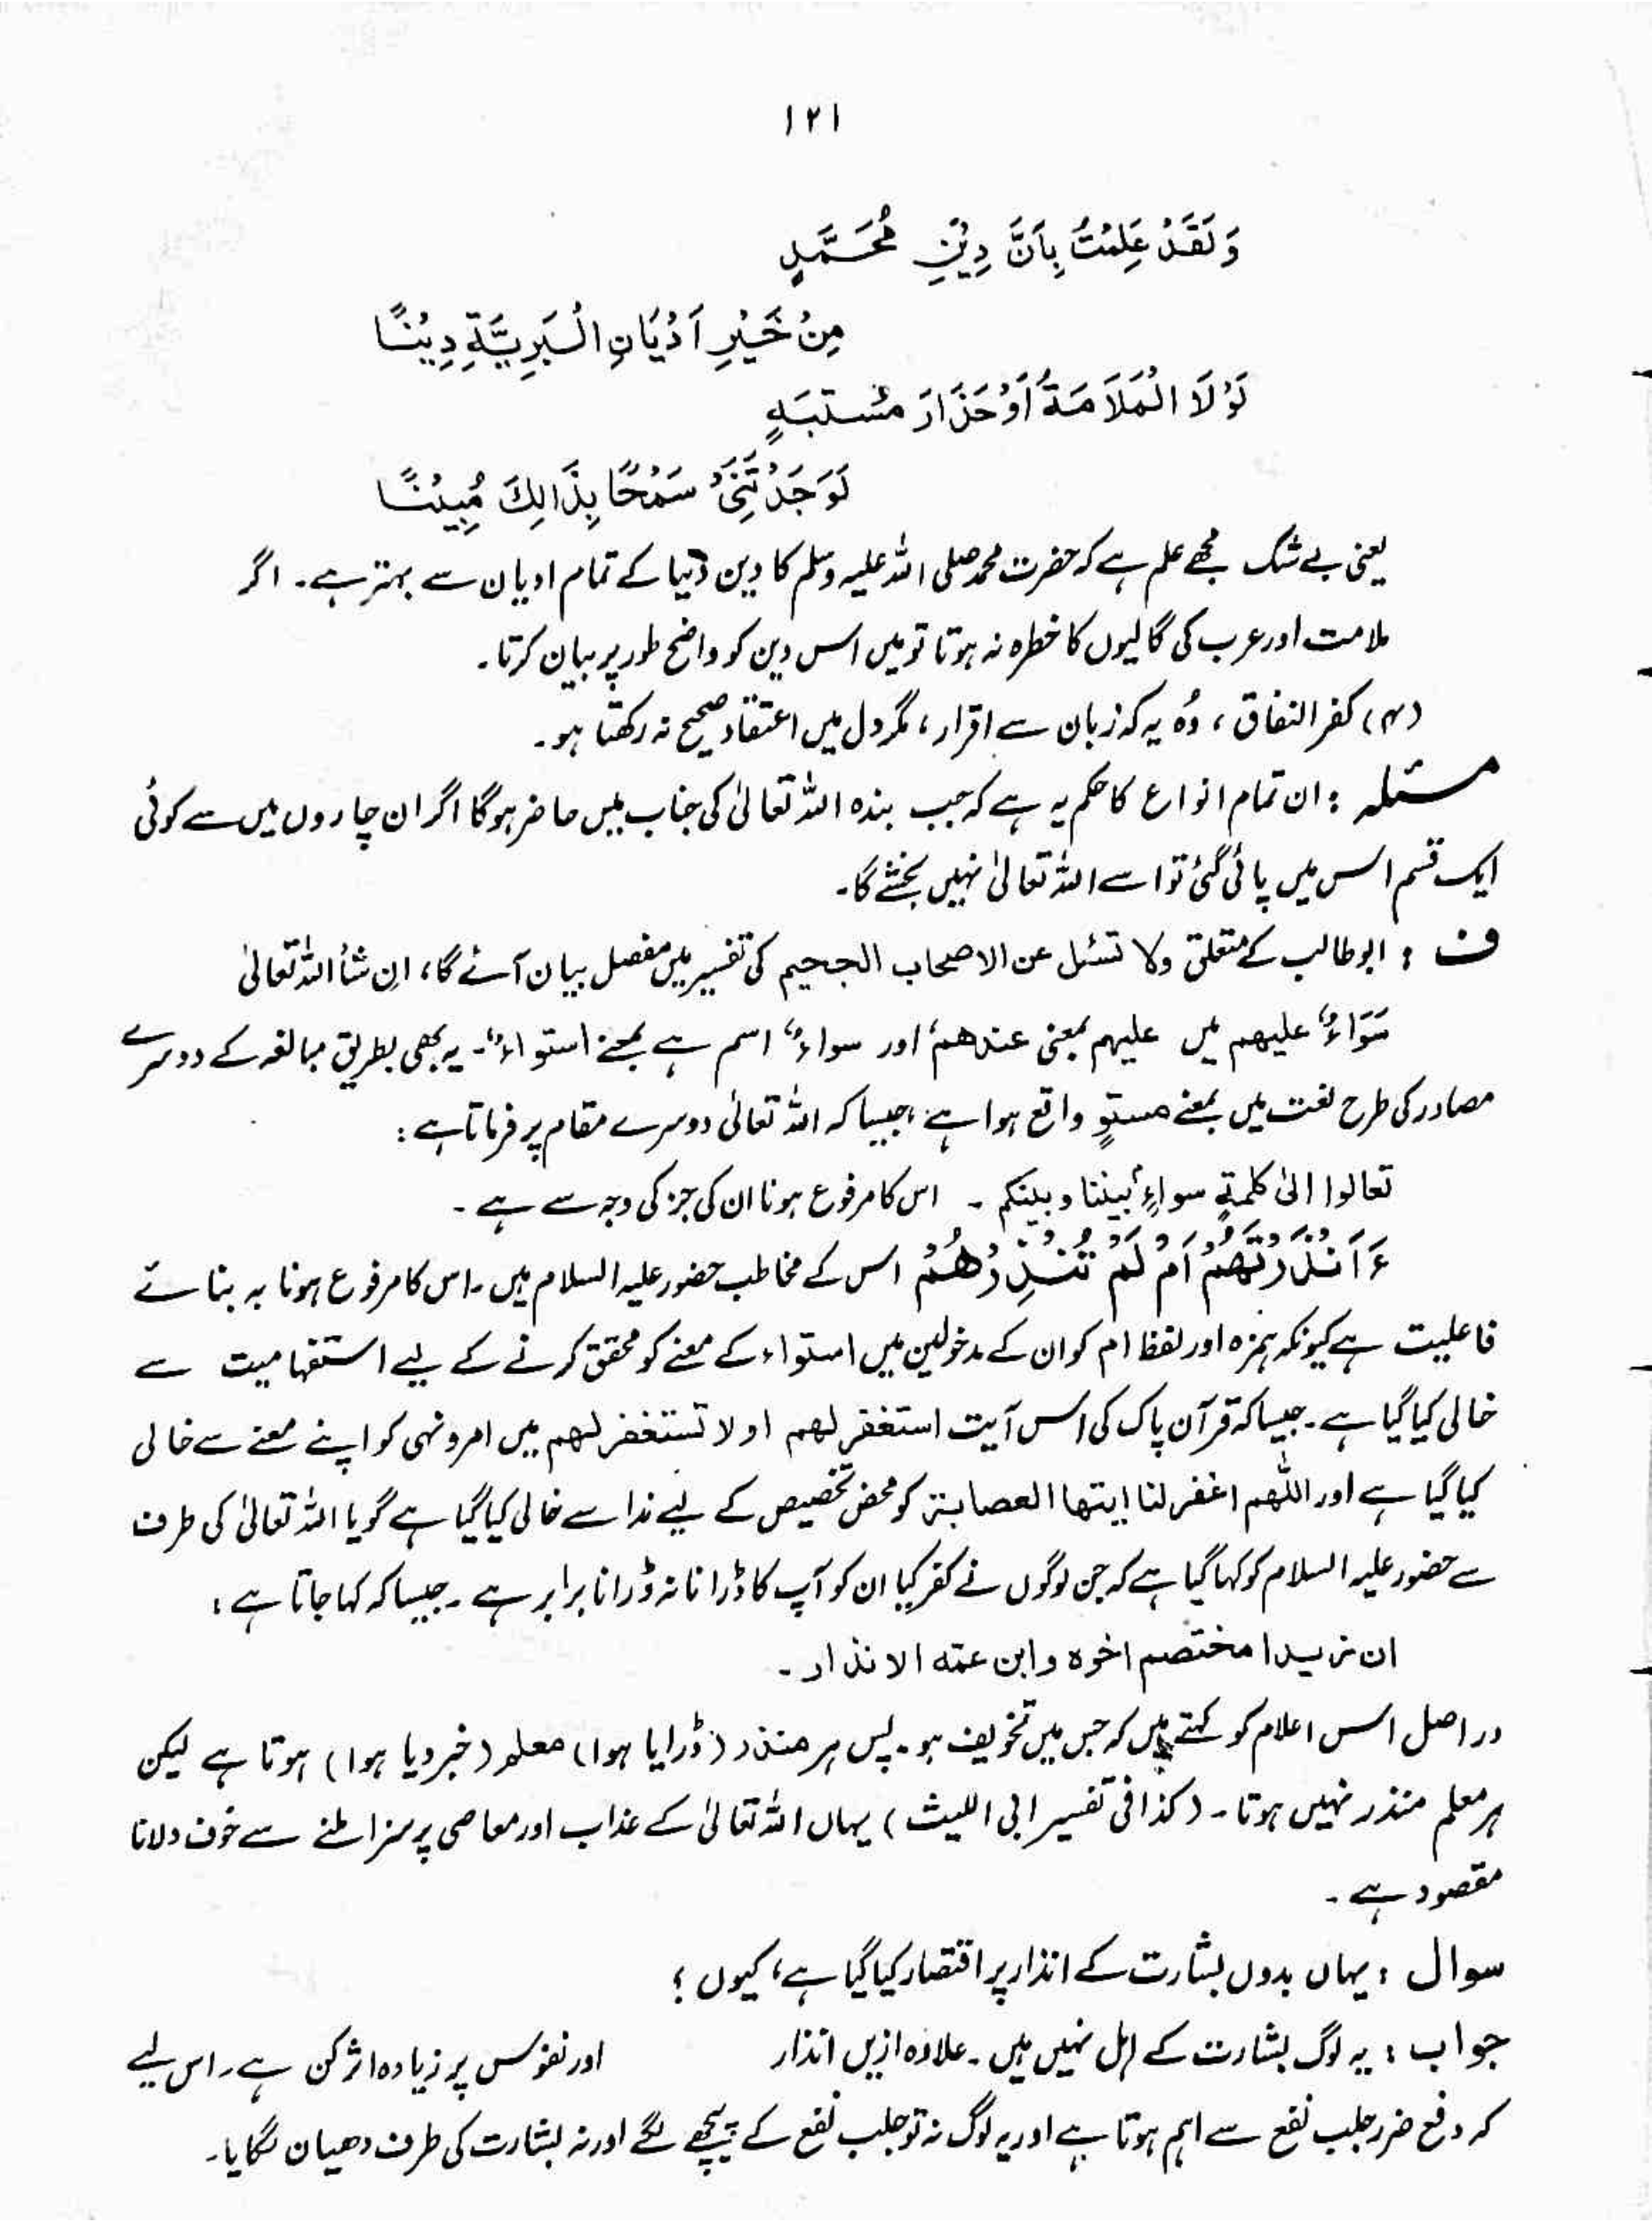 ۱۲۱
وَلَقَدْ عَلِمْتُ بِاَنَّ دِيْنِ مُحَمَّدٍ
مِنْ خَيْرِ اَدْيَانِ الْبَرِيَّةِ دِيْنًا
لَوْلَا الْمَلَامَةُ اَوْ حَذَارَ مسْتبَهٍ
لَوَجَدْتَنِىْ سَمْحًا بِذَالِكَ مُبِيْنًا
یعنی بے شک مجھے علم ہے کہ حضرت محمد صلی اللہ علیہ وسلم کا دین دنیا کے تمام ادیان سے بہتر ہے۔ اگر
ملامت اور عرب کی گالیوں کا خطرہ نہ ہوتا تو میں اس دین کو واضح طور پر بیان کرتا۔
(۴) کفر النفاق، وُہ یہ کہ زبان سے اقرار، مگر دل میں اعتقاد صحیح نہ رکھتا ہو۔
مسئلہ : ان تمام انواع کا حکم یہ ہے کہ جب بندہ اللہ تعالیٰ کی جناب میں حاضر ہوگا اگر ان چاروں میں سے کوئی
ایک قسم اس میں پائی گئی تو اسے اللہ تعالیٰ نہیں بخشے گا۔
ف : ابوطالب کے متعلق ولا تسئل عن الاصحاب الجحیم کی تفسیر میں مفصل بیان آئے گا، اِن شأ اللہ تعالیٰ
سَوَاءٌ علیهم میں علیہم بمعنی عندهم اور سواءٌ اسم ہے بمعنے استواءٌ۔ یہ بھی بطریق مبالغہ کے دوسرے
مصادر کی طرح لغت میں بمعنے مستوٍ واقع ہوا ہے، جیسا کہ اللہ تعالیٰ دوسرے مقام پر فرماتا ہے :
تعالوا الیٰ کلمةٍ سواءٍ بیننا و بینکم ۔ اس کا مرفوع ہونا ان کی جز کی وجہ سے ہے ۔
ءَ اَنْذَرْتَهُمْ اَمْ لَمْ تُنْذِرْهُمْ اس کے مخاطب حضور علیہ السلام میں۔ اس کا مرفوع ہونا بہ بنائے
فاعلیت ہے کیونکہ ہمزہ اور لفظ ام کو ان کے مدخولین میں استواء کے معنے کو محقق کرنے کے لیے استفہامیت سے
خالی کیا گیا ہے۔ جیسا کہ قرآن پاک کی اس آیت استغفر لهم او لا تستغفر لهم میں امر و نہی کو اپنے معنے سے خالی
کیا گیا ہے اور اللّٰهم اغفر لنا ایتها العصابة کو محض تخصیص کے لیے ندا سے خالی کیا گیا ہے گویا اللہ تعالیٰ کی طرف
سے حضور علیہ السلام کو کہا گیا ہے کہ جن لوگوں نے کفر کیا ان کو آپ کا ڈرانا نہ ڈرانا برابر ہے۔ جیسا کہ کہا جاتا ہے :
ان زیدا مختصم اخوہ وابن عمّه الانذار ۔
دراصل اس اعلام کو کہتے ہیں کہ جس میں تخویف ہو۔ پس ہر منذر (ڈرایا ہوا) معلم (خبر دیا ہوا) ہوتا ہے لیکن
ہر معلم منذر نہیں ہوتا۔ (کذا فی تفسیر ابی اللیث) یہاں اللہ تعالیٰ کے عذاب اور معاصی پر سزا ملنے سے خوف دلانا
مقصود ہے ۔
سوال : یہاں بدوں بشارت کے انذار پر اقتصار کیا گیا ہے، کیوں؟
جواب : یہ لوگ بشارت کے اہل نہیں ہیں۔ علاوہ ازیں انذار اور نفوس پر زیادہ اثر کن ہے۔ اس لیے
کہ دفع ضرر جلب نفع سے اہم ہوتا ہے اور یہ لوگ نہ تو جلب نفع کے پیچھے لگے اور نہ بشارت کی طرف دھیان لگایا۔